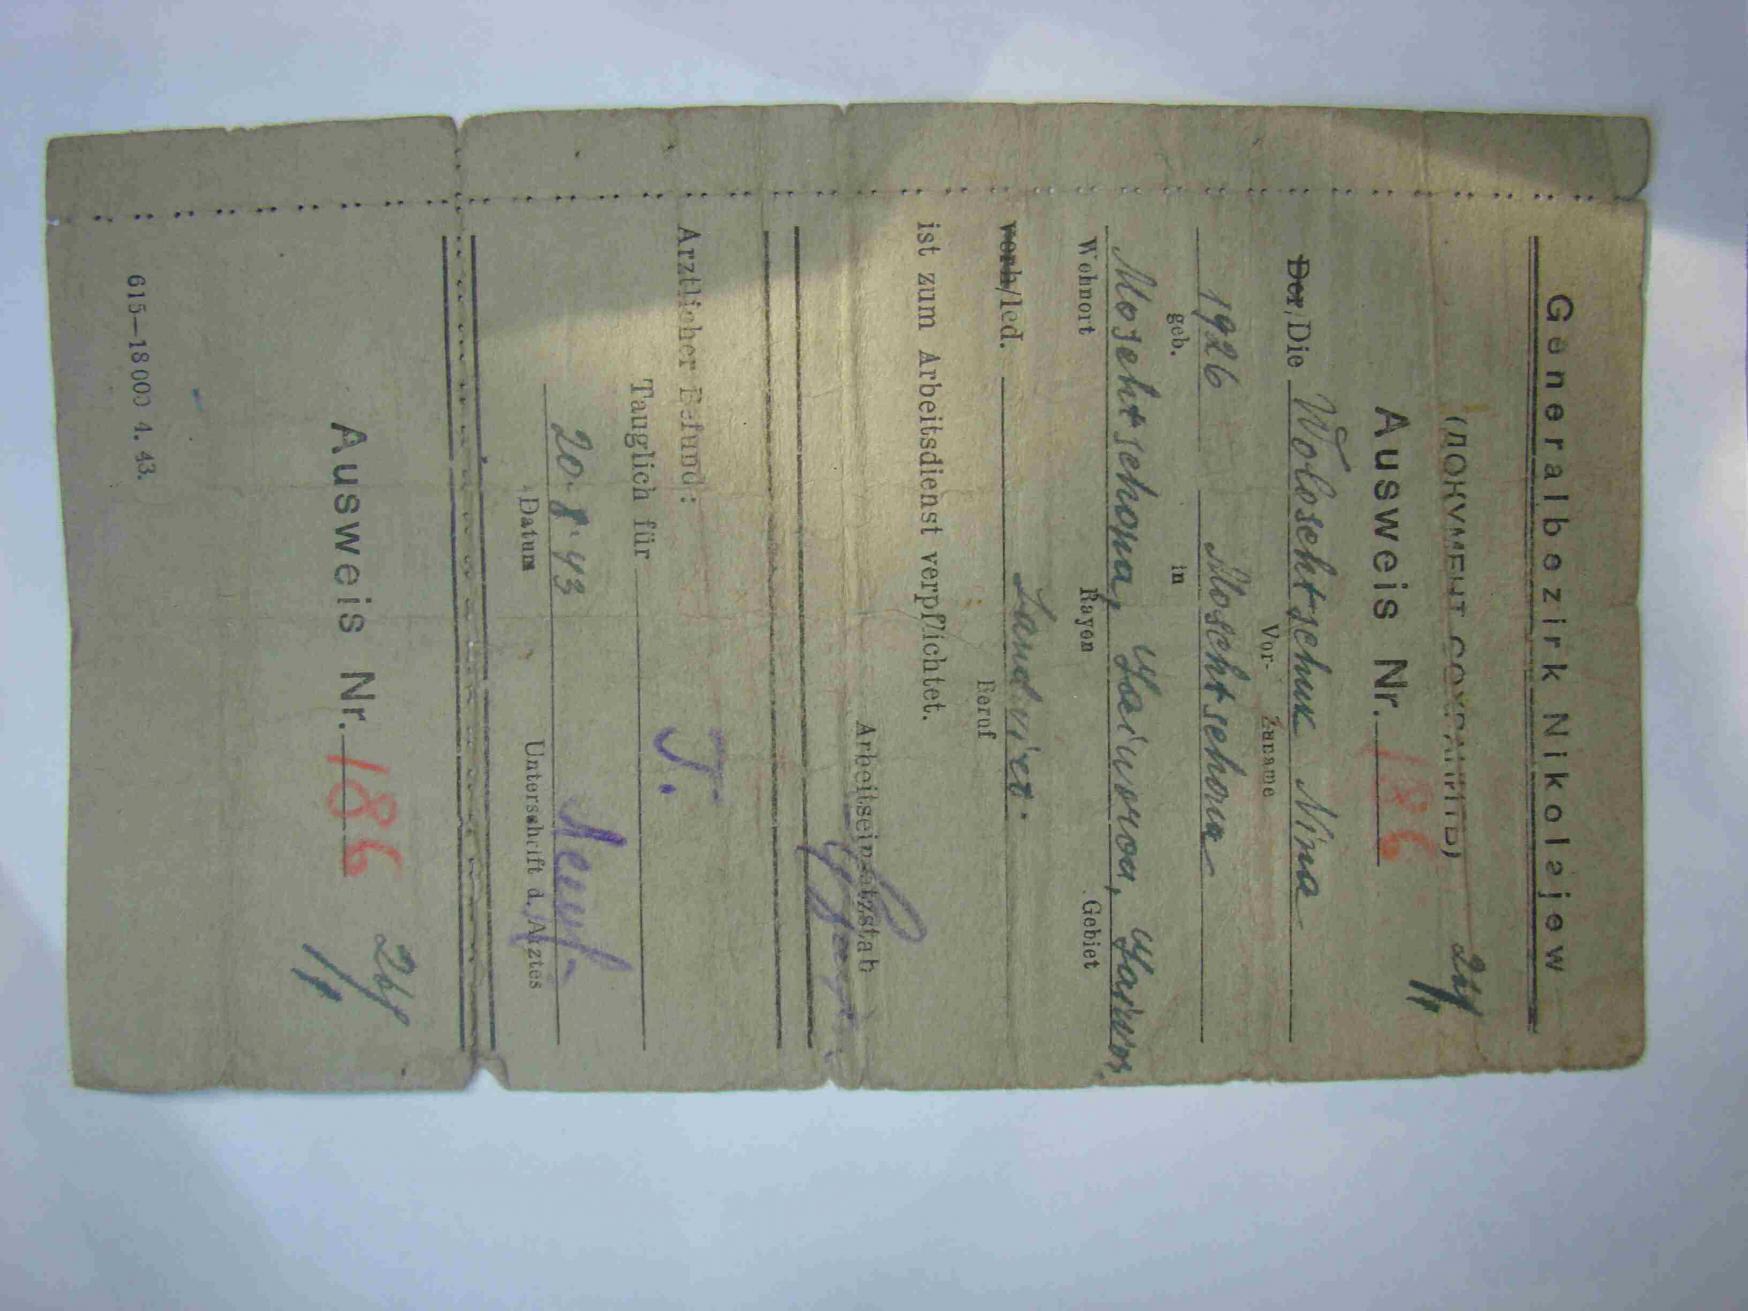 Generalbezirk Nikolajew
(ДОКУМЕНТ СОХРАНИТЬ)
Ausweis Nr. 186
Der/Die Woloschtschuk Nina
Vor- Zuname
1926 Moschtschona
geb. in
Moschtschona,
Wohnort Rayon Gebiet
verh/led. Landwirt.
Beruf
ist zum Arbeitsdienst verpflichtet.
Arbeitseinsatzstab
Arztlicher Befund:
T.
Tauglich für
20.8.43
Datum Unterschrift d. Arztes
Ausweis Nr. 186
615—18000 4. 43.